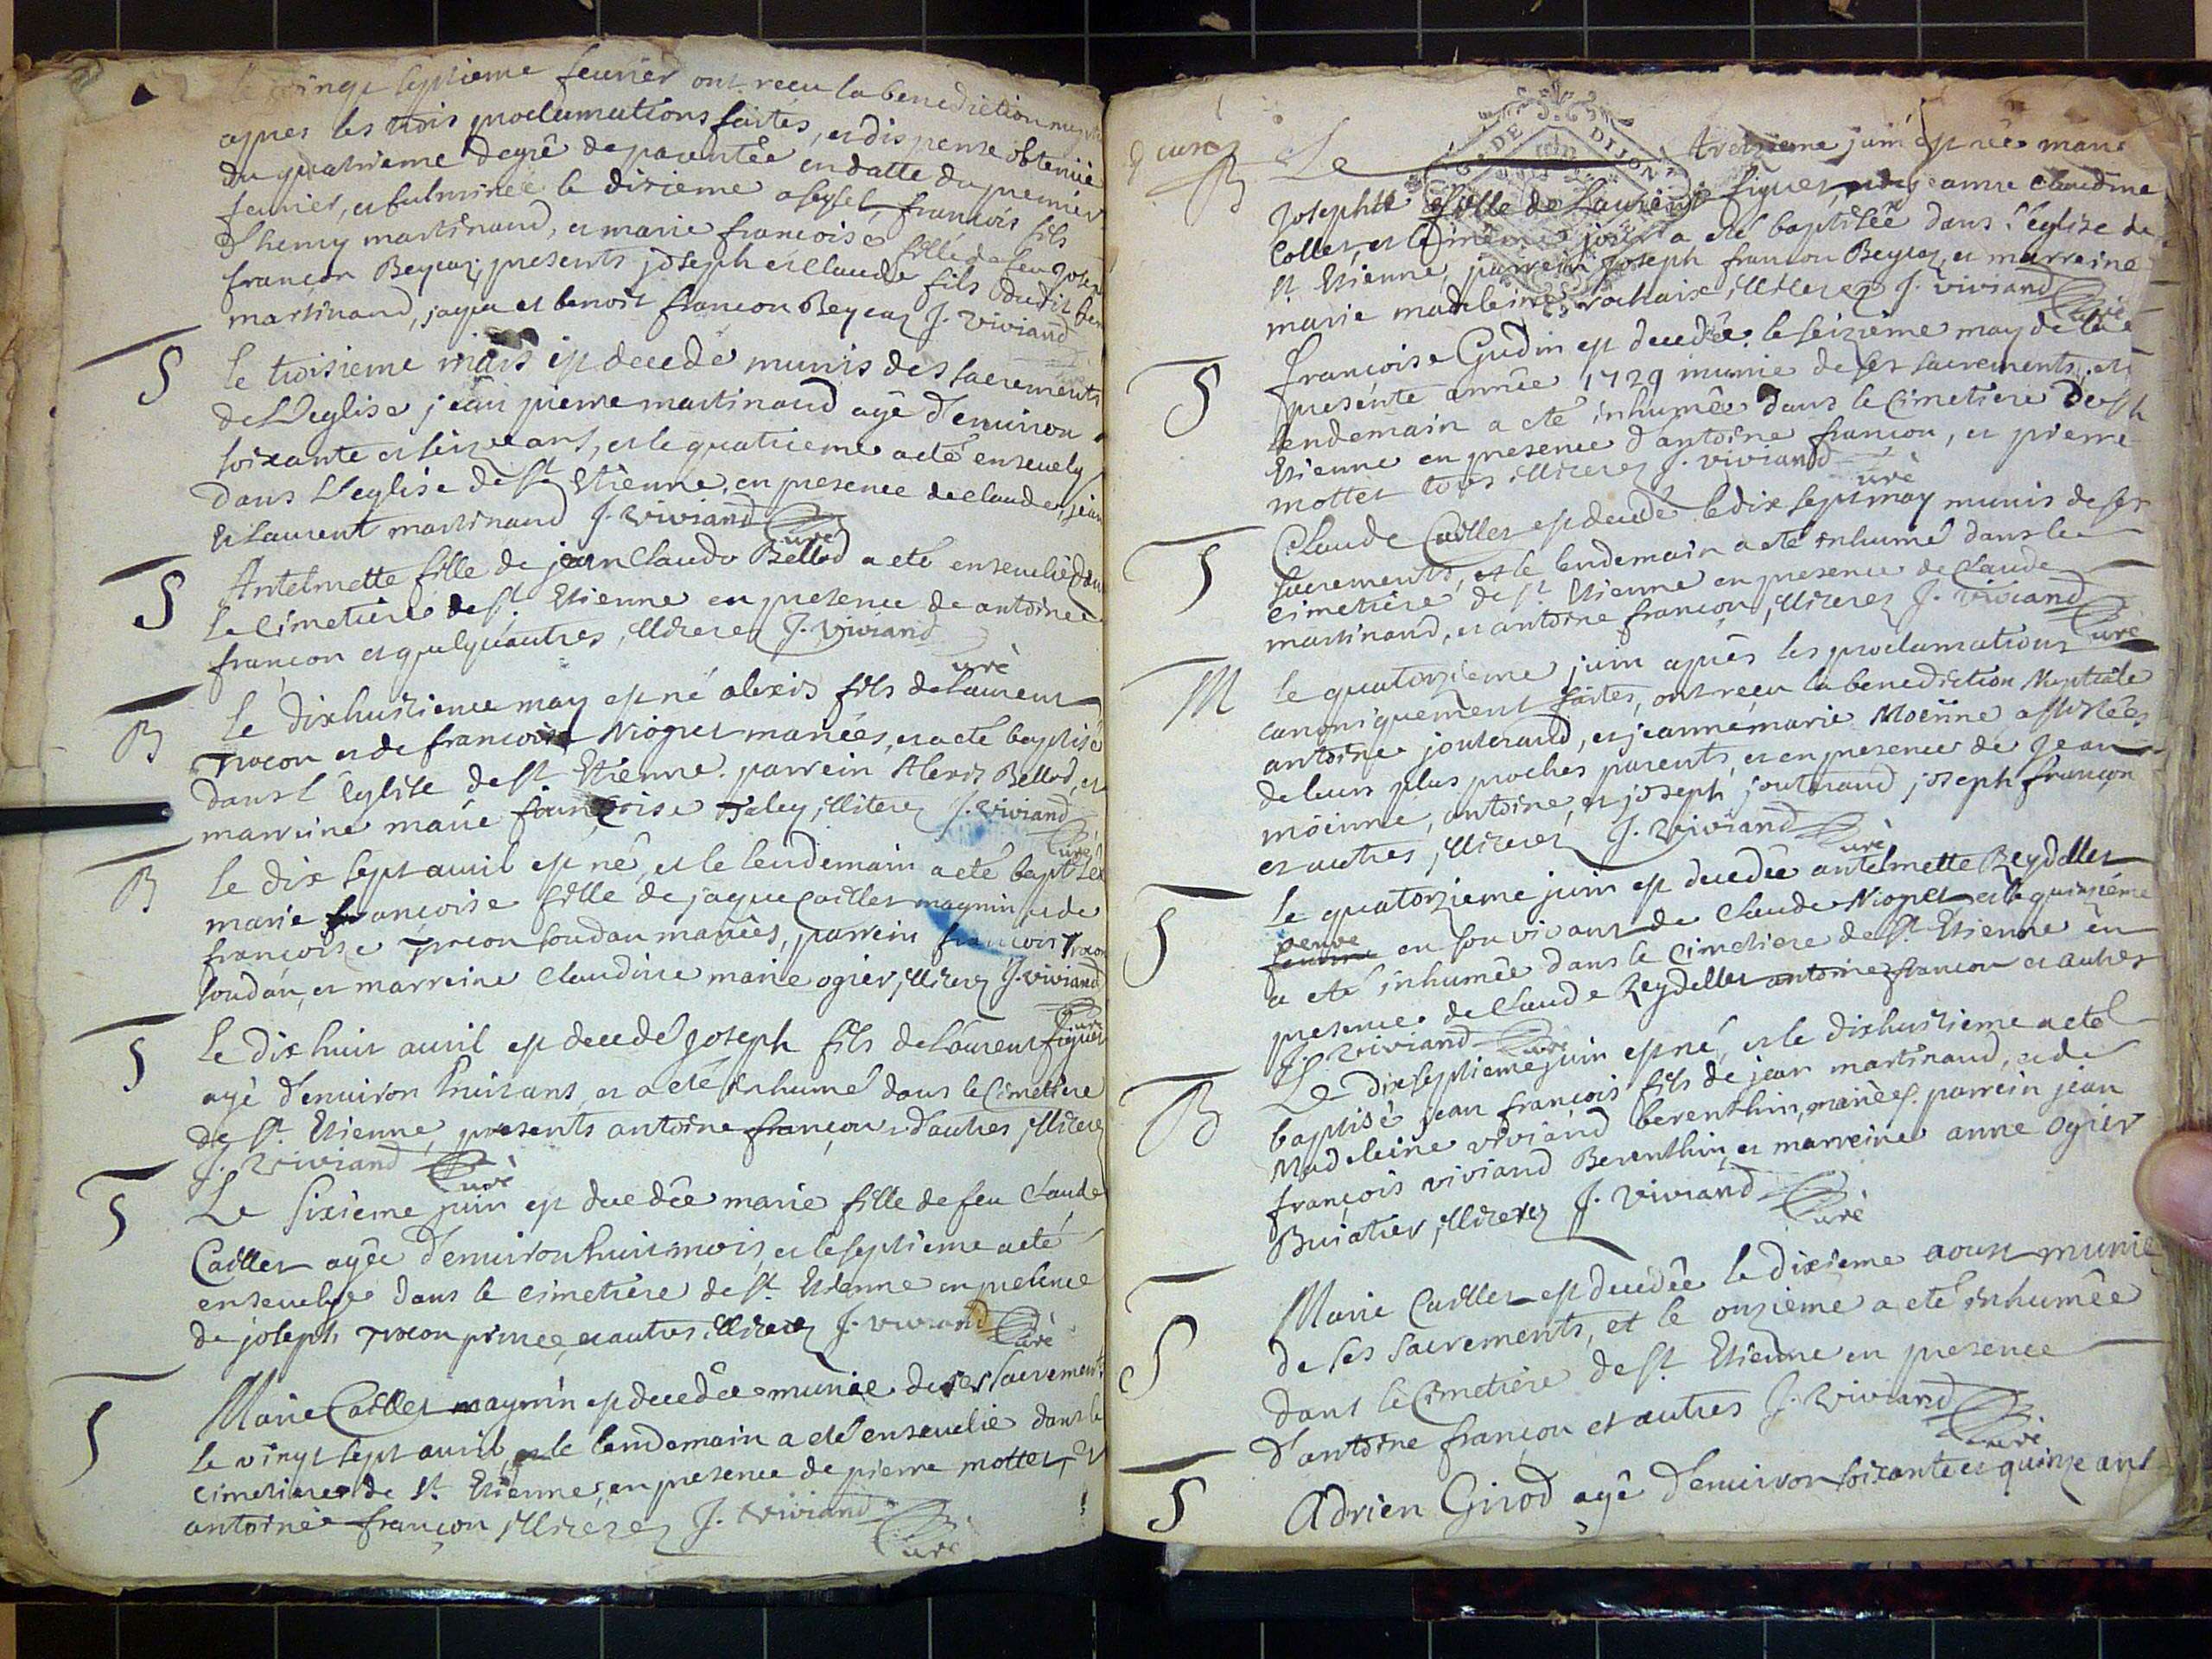 le vingt septieme feurier ont receu la benediction nuptia
apres les trois proclamations faites, et dispense obtenüe
du quatrieme degré de parentée en datte du premier
feurier, et fulminée le dixieme a seyssel, francois fils
d'henry martinand, et marie francoise fille de feu Josep
françon Beycaz, presents joseph et Claude fils dudit hen
martinand, jaque et benoit françon Beycaz J. Viviand
S le troisieme mars est decedé munis des sacrements
de L'eglise jean pierre martinand agé d'enuiron
soixante et seize ans, et le quatrieme a eté enseuely
dans L'eglise de St Etienne, en presence de claude, jean
et Laurent martinand J. Viviand Curé
S Antelmette fille de jean Claude Bellod a eté enseuelie dans
Le Cimetiere de St. Etienne en presence de antoine
françon et quelqu'autres, illiterez J. Viviand Curé
B le dixhuitieme may est né alexis fils de Laurent
Trocon et de francoise Niogret mariées, et a eté baptisé
dans l'Eglise de St Etienne. parrein Alexis Bellod, et
marreine marie françoise illiterez J. Viviand Curé
B le dix sept auril est né, et le lendemain a eté baptisée
marie françoise fille de jaque Caillet magnin et de
françoise Trocon soudan mariées, parrein francois Trocon
soudan, et marreine Claudine marie ogier, illiterez J. Viviand
Curé
S le dix huit auril est decedé joseph fils de Laurent figuet
agé d'enuiron huit ans, et a eté inhumé dans le Cimetiere
de St. Etienne, presents antoine françon et d'autres, illiterez
J. Viviand Curé
S Le sixieme juin est decedée marie fille de feu Claude
Caillet agée d'enuiron huit mois, et le septieme a eté
enseuelye dans le cimetiere de St. Etienne en presence
de joseph Trocon prince, et autres illiterez J. Viviand Curé
S Marie Caillet magnin est decedée munie de ses sacrements
le vingt sept auril, et le lendemain a eté enseuelie dans le
cimetiere de St. Etienne, en presence de pierre mottet, et
antoine françon illiterez J. Viviand Curé
DE DIJON
B Le treizieme juin est née marie
Josephte fille de Laurent figuet, et de jeanne Claudine
Collet, et le meme jour a eté baptisée dans l'eglise de
St. Etienne, parrein Joseph francon Beycaz, et marreine
marie madeleine rochaix, illiterez J. Viviand Curé
S françoise Gudin est decedée le seizieme may de la
presente année 1729 munie de ses sacrements, et le
lendemain a eté inhumée dans le Cimetiere de St
Etienne en presence d'antoine françon, et pierre
mottet tous illiterez J. Viviand Curé
S Claude Caillet est decedé le dix sept may munis de ses
sacrements, et le lendemain a eté inhumé dans le
cimetiere de St Etienne en presence de Claude
martinand, et antoine françon, illiterez J. Viviand Curé
M le quatorzieme juin après les proclamations
canoniquement faites, ont receu la benediction Nuptiale
antoine jouterand, et jeanne marie Moënne assistées
de leurs plus proches parents, et en presence de Jean
moënne, antoine, et joseph jouterand joseph françon
et autres, illiterez J. Viviand Curé
S le quatorzieme juin est decedée antelmette Reydellet
veuve
femme en son vivant de Claude Niogret et le quinzieme
a eté inhumée dans le cimetiere de St. Etienne en
presence de Claude Reydellet antoine francon et autres
J. Viviand Curé
B Le dixseptieme juin est né, et le dixhuitieme a eté
baptisé jean françois fils de jean martinand, et de
Madeleine viviand berenthin, mariées. parrein jean
françois viviand Berenthin, et marreine anne ogier
Buiatier, illiterez J. Viviand Curé
S Marie Caillet est decedée le dixieme aoust munie
de ses sacrements, et le onzieme a eté inhumée
dans le Cimetiere de St. Etienne en presence
d'antoine françon et autres J. Viviand Curé
S Adrien Girod agé d'enuiron soixante et quinze ans